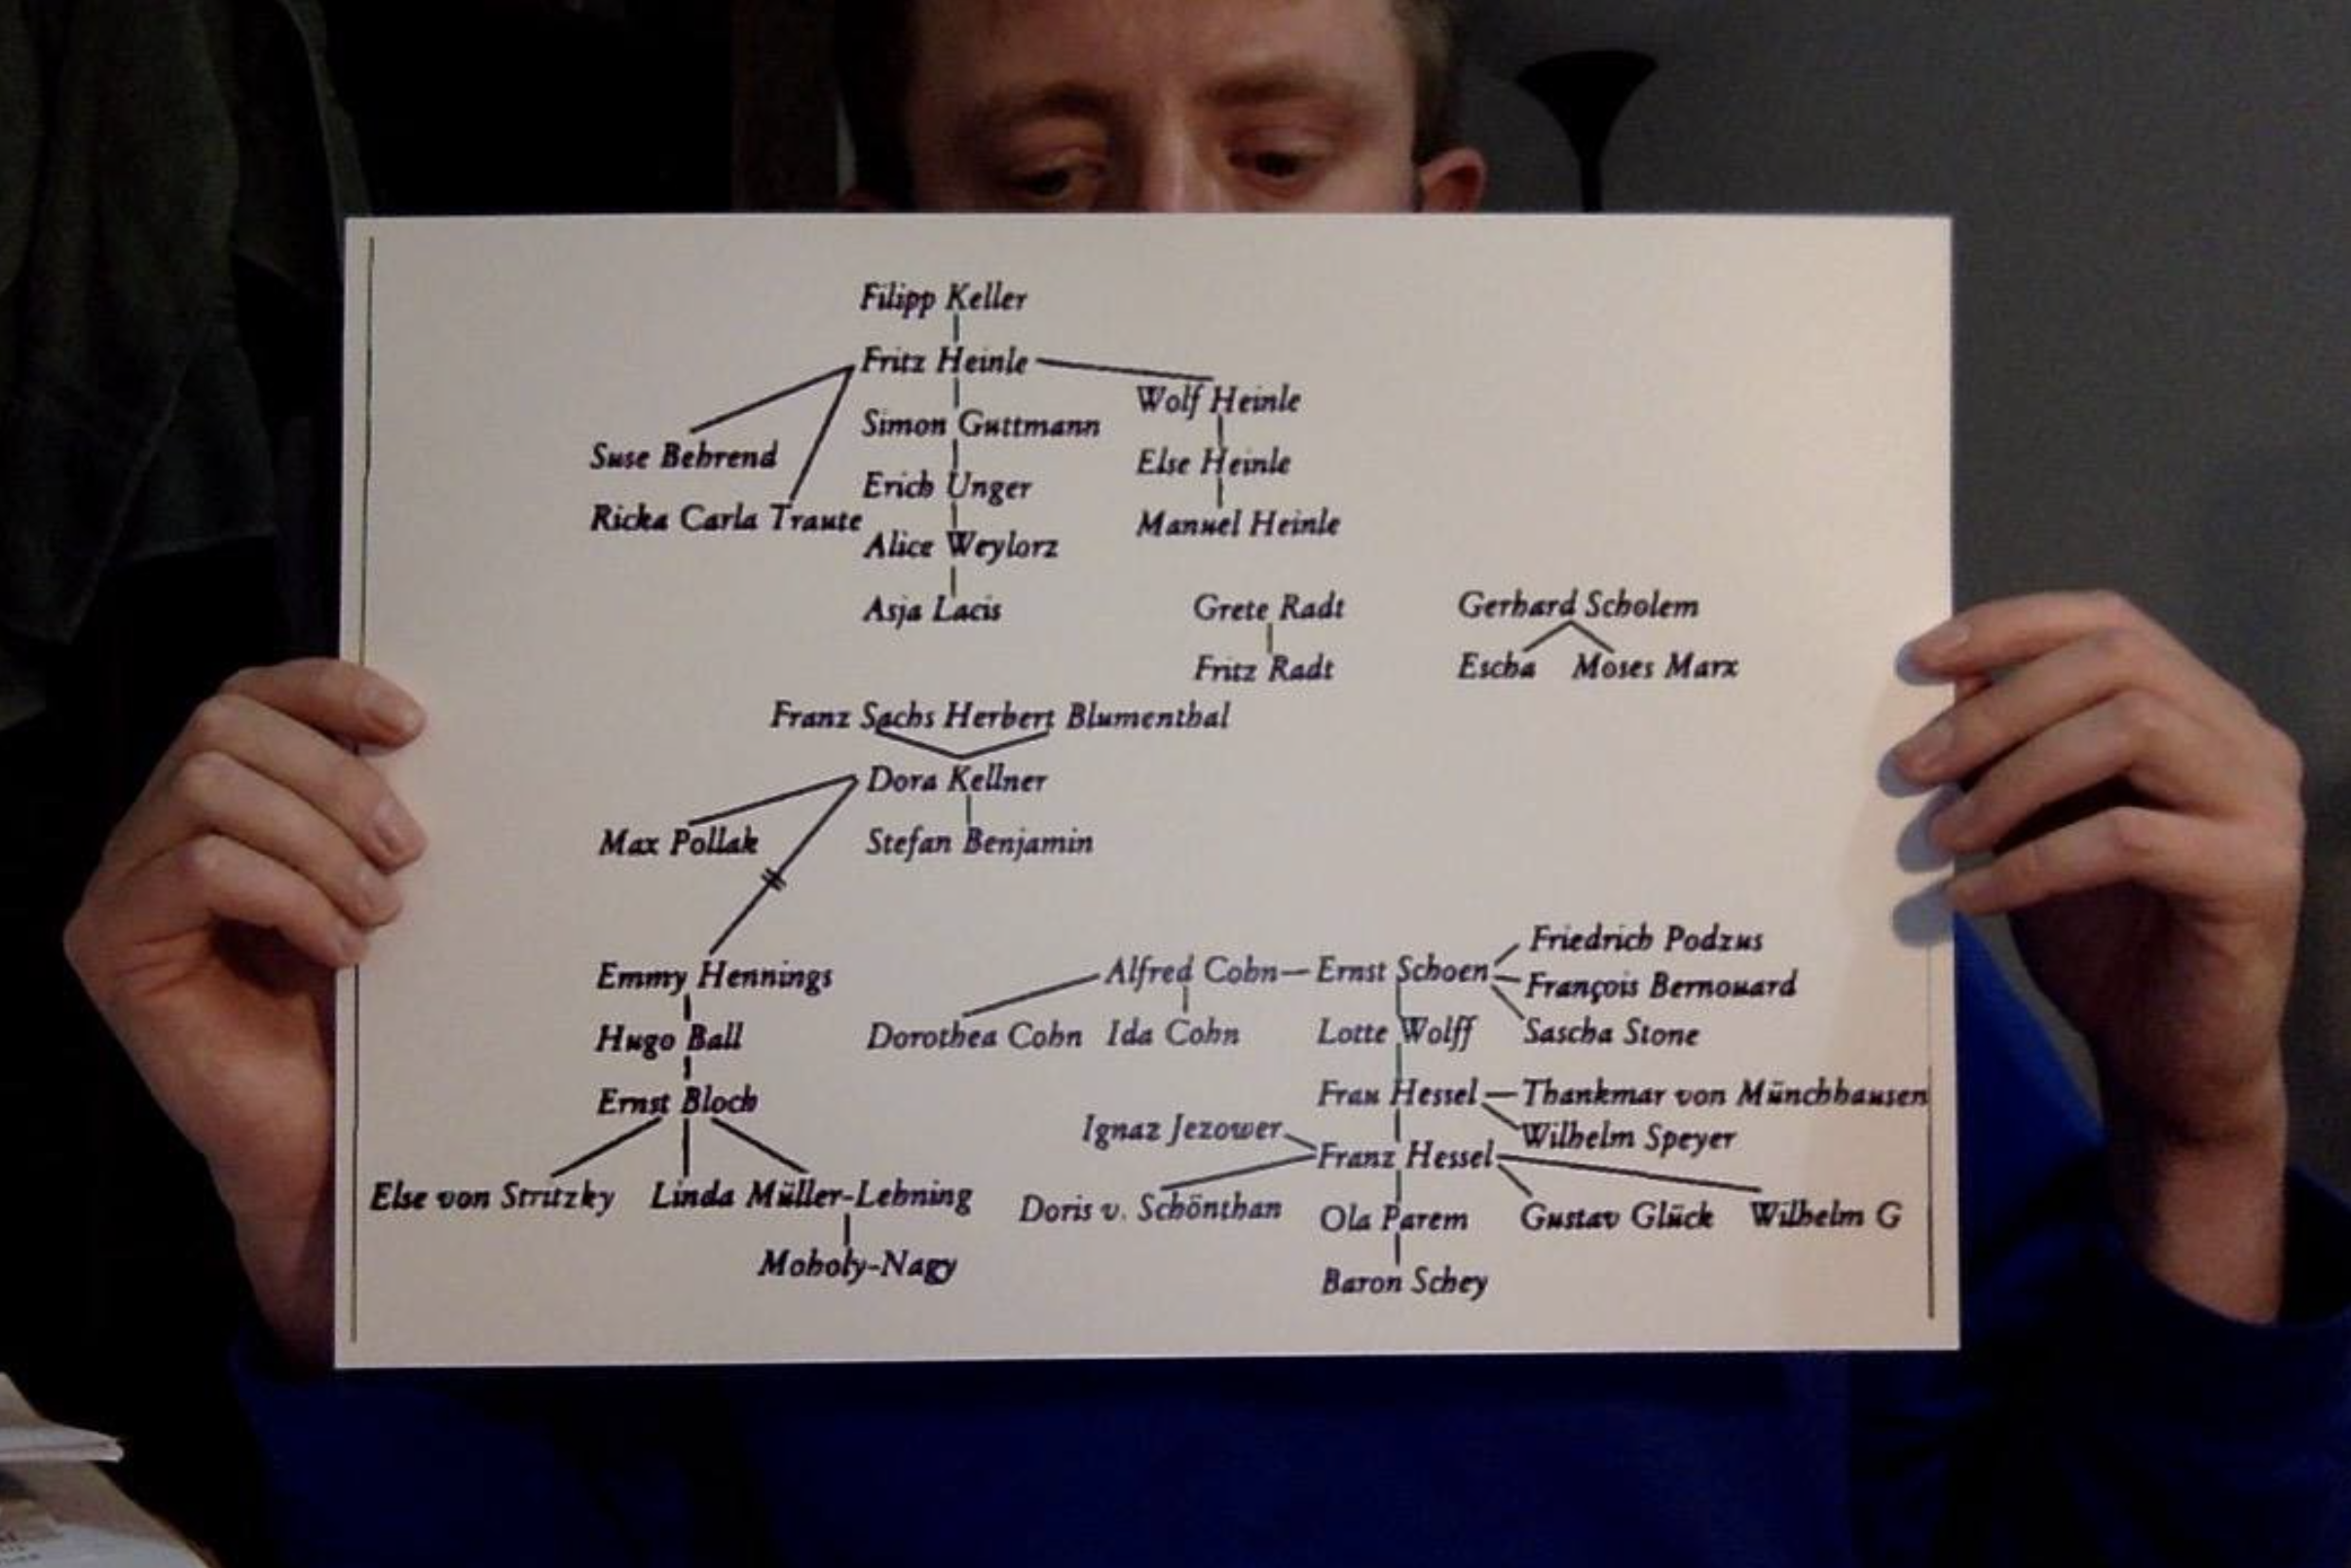 Filipp Keller
Fritz Heinle
Wolf Heinle
Simon Guttmann
Suse Behrend
Else Heinle
Erich Unger
Ricka Carla Traute
Manuel Heinle
Alice Weylorz
Asja Lacis
Grete Radt
Gerhard Scholem
Fritz Radt
Escha Moses Marx
Franz Sachs Herbert Blumenthal
Dora Kellner
Max Pollak
Stefan Benjamin
Friedrich Podzus
Emmy Hennings
Alfred Cohn
Ernst Schoen
François Bernouard
Hugo Ball
Dorothea Cohn
Ida Cohn
Lotte Wolff
Sascha Stone
Ernst Bloch
Frau Hessel
Thankmar von Münchhausen
Ignaz Jezower
Wilhelm Speyer
Franz Hessel
Else von Stritzky
Linda Müller-Lehning
Doris v. Schönthan
Ola Parem
Gustav Glück
Wilhelm G
Moholy-Nagy
Baron Schey